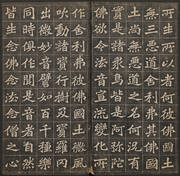 所生所以者何彼佛國土
無三惡道舍利弗其佛國
土尚無惡道之名何況有
實是諸眾鳥皆是阿彌陀
佛欲令法音宣流變化所
作舍利弗彼佛國土微風
吹動諸寶行樹及寶羅網
出微妙音譬如百千種樂
同時俱作聞是音者自然
皆生念佛念法念僧之心